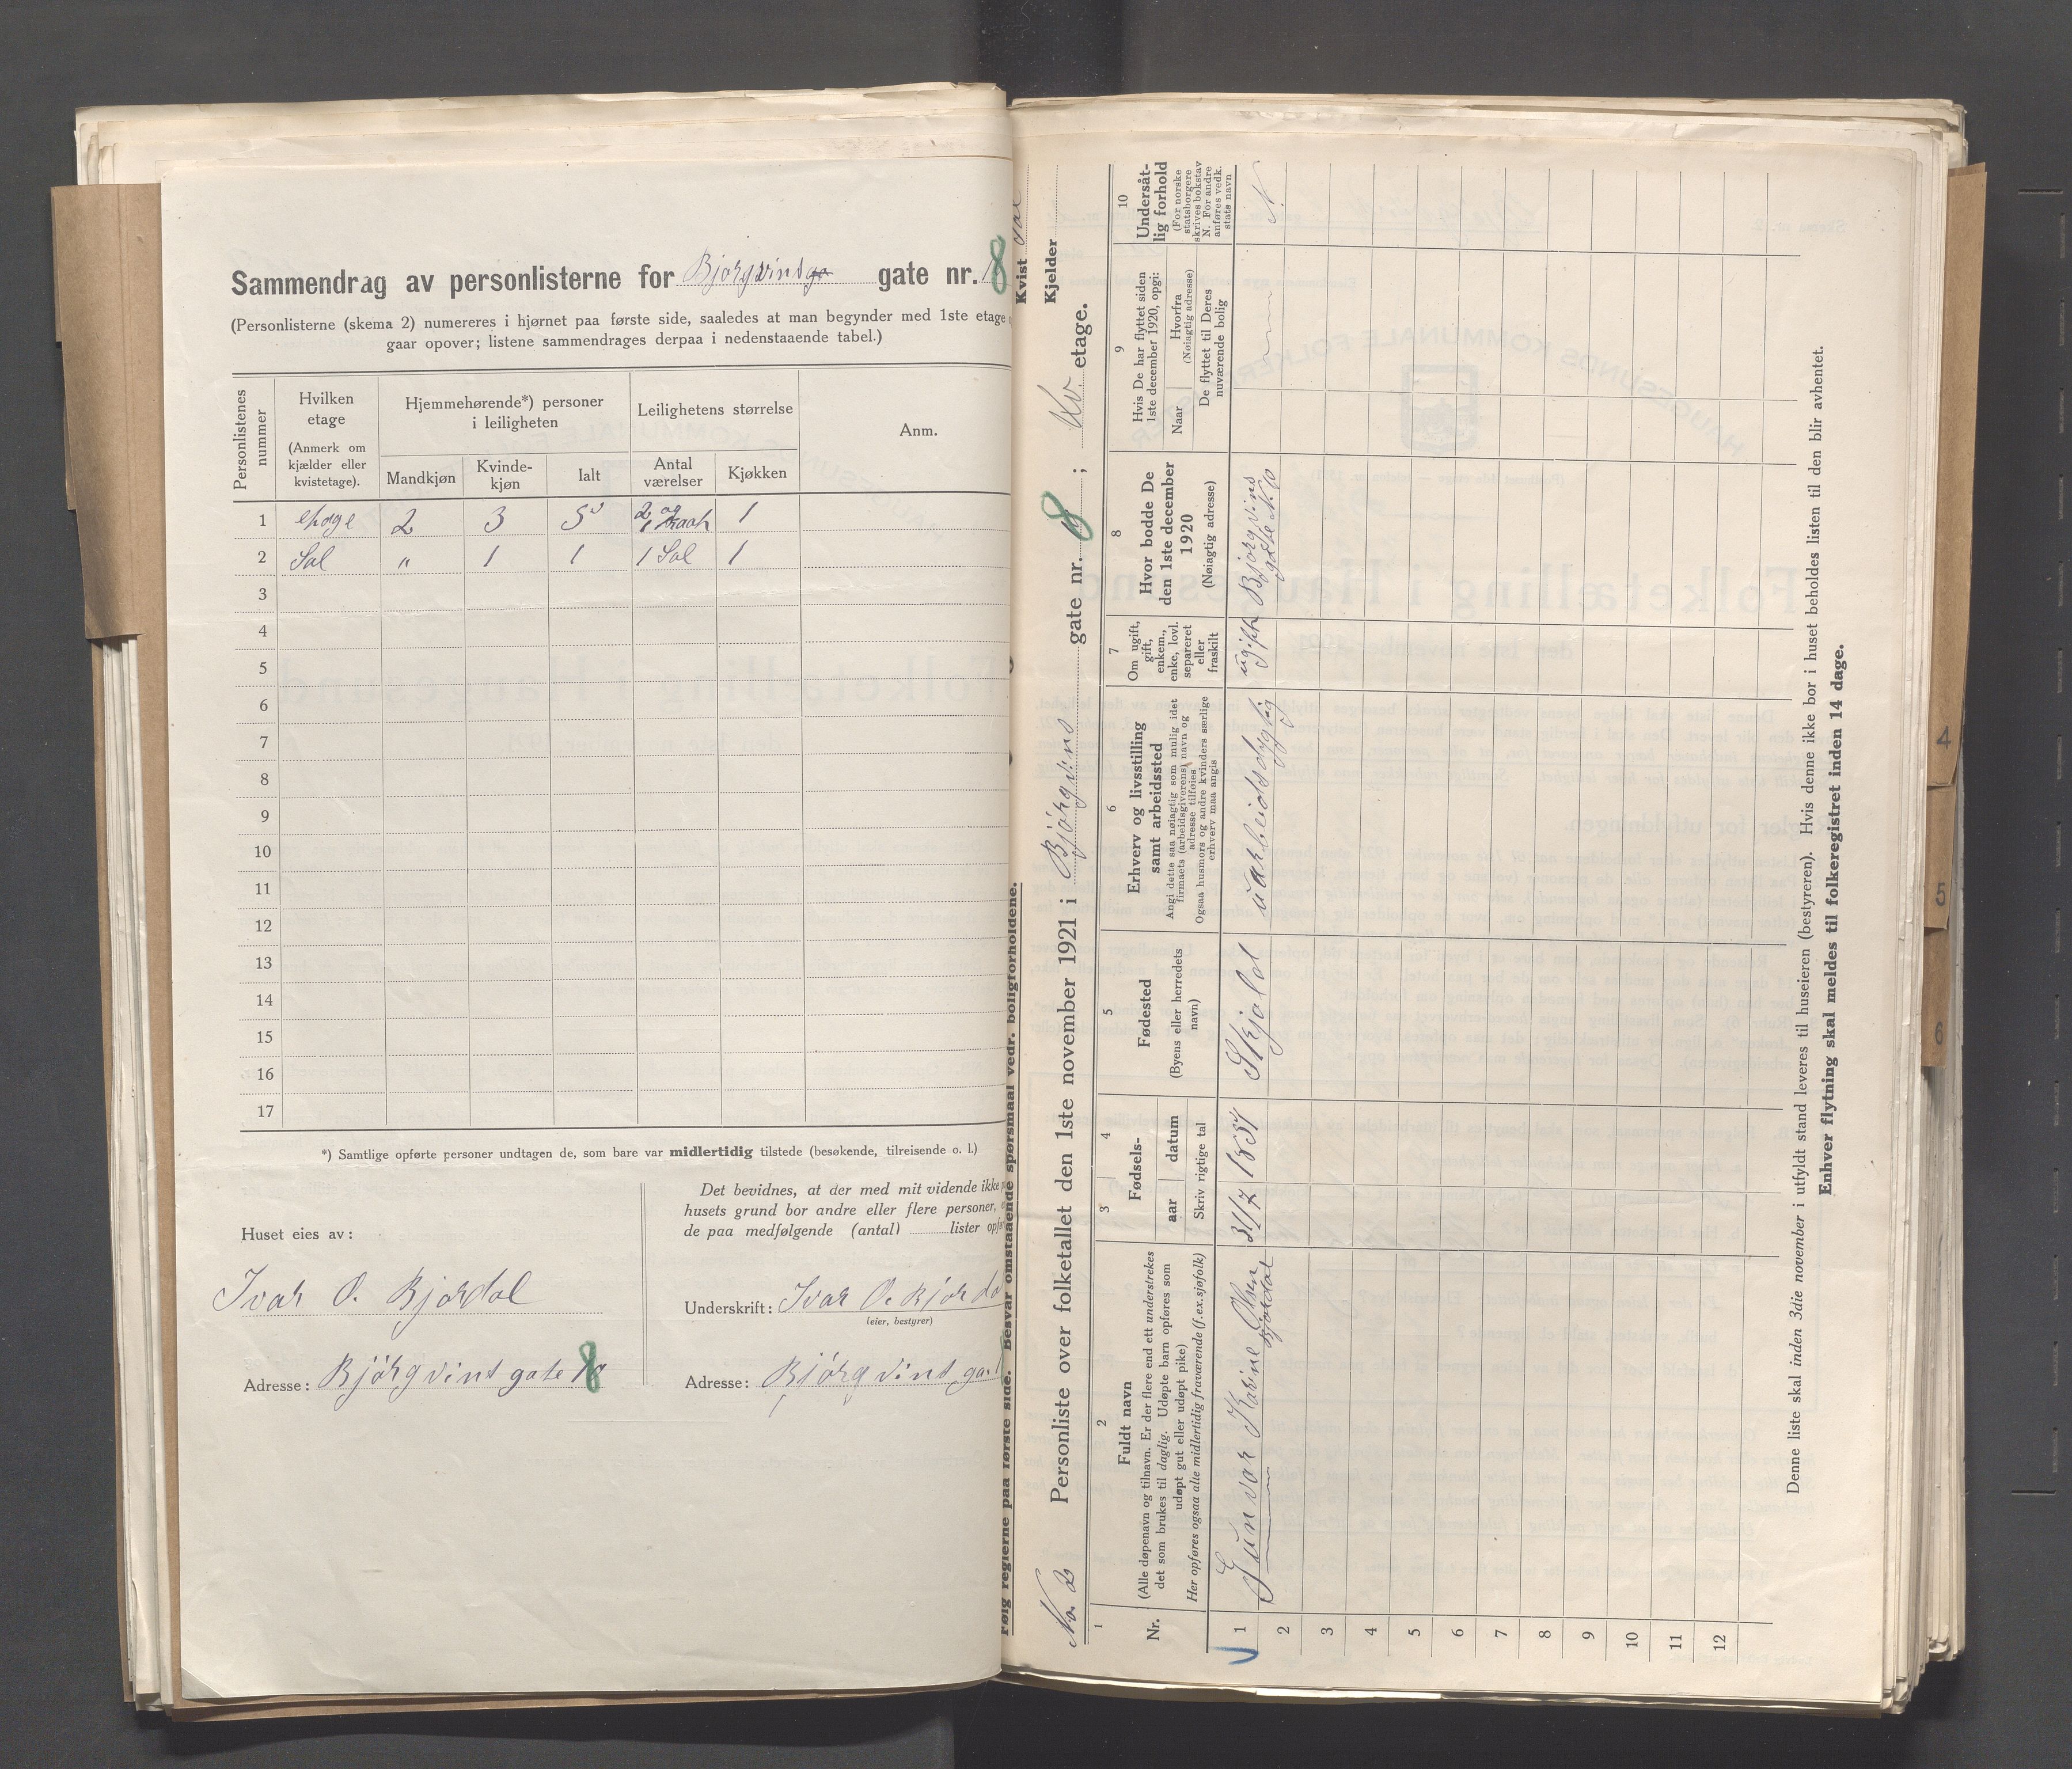 Sammendrag av personlisterne for Bjørgvinsga gate nr. 8
(Personlisterne (skema 2) numereres i hjørnet paa første side, saaledes at man begynder med 1ste etage
gaar opover; listene sammendrages derpaa i nedenstaaende tabel.)
Personlistenes nummer
Hvilken etage
(Anmerk om kjælder eller kvistetage).
Hjemmehørende*) personer i leiligheten
Mandkjøn
Kvinde-kjøn
Ialt
Leilighetens størrelse
Antal værelser
Kjøkken
Anm.
1 2 3 5 2 og 1
2 Sal " 1 1 1 Sal 1
3
4
5
6
7
8
9
10
11
12
13
14
15
16
17
*) Samtlige opførte personer undtagen de, som bare var midlertidig tilstede (besøkende, tilreisende o. l.)
Huset eies av:
Ivar O. Bjordal
Adresse: Bjørgvins gate 8
Det bevidnes, at der med mit vidende ikke
husets grund bor andre eller flere personer,
de paa medfølgende (antal) lister opf
Underskrift: Ivar O. Bjorda
(eier, bestyrer)
Adresse: Bjørgvins ga
Følg reglerne paa første side. Besvar omstaaende spørsmaal vedr. boligforholdene.
No. 2 Personliste over folketallet den 1ste november 1921 i Bjørgvins gate nr. 8 ; Kv. etage.
Kvist Sal
Kjelder
1
Nr.
2
Fuldt navn
(Alle døpenavn og tilnavn. Er der flere end ett understrekes
det som brukes til daglig. Udøpte barn opføres som
udøpt gut eller udøpt pike)
Her opføres ogsaa alle midlertidig fraværende (f. ex. sjøfolk)
3 4
Fødsels-
aar datum
Skriv rigtige tal
5
Fødested
(Byens eller herredets navn)
6
Erhverv og livsstilling
samt arbeidssted
Angi dette saa nøiagtig som mulig idet
firmaets (arbeidsgiverens) navn og
adresse tilføies
Ogsaa husmors og andre kvinders særlige
erhverv maa angis
7
Om ugift,
gift,
enkem.,
enke, lovl.
separeret
eller
fraskilt
8
Hvor bodde De
den 1ste december
1920
(Nøiagtig adresse)
9
Hvis De har flyttet siden
1ste december 1920, opgi:
Naar
Hvorfra
(Nøiagtig adresse)
De flyttet til Deres
nuværende bolig
10
Undersåt-
lig forhold
(For norske
statsborgere
skrives bokstav
N. For andre
anføres vedk.
stats navn
1 Gunvor Karine Olsen Bjordal 31/7 Skjold uarbeidsdygtig ugift Bjørgvins gate N. 10 N.
2
3
4
5
6
7
8
9
10
11
12
Denne liste skal inden 3die november i utfyldt stand leveres til huseieren (bestyreren). Hvis denne ikke bor i huset beholdes listen til den blir avhentet.
Enhver flytning skal meldes til folkeregistret inden 14 dage.
4
5
6